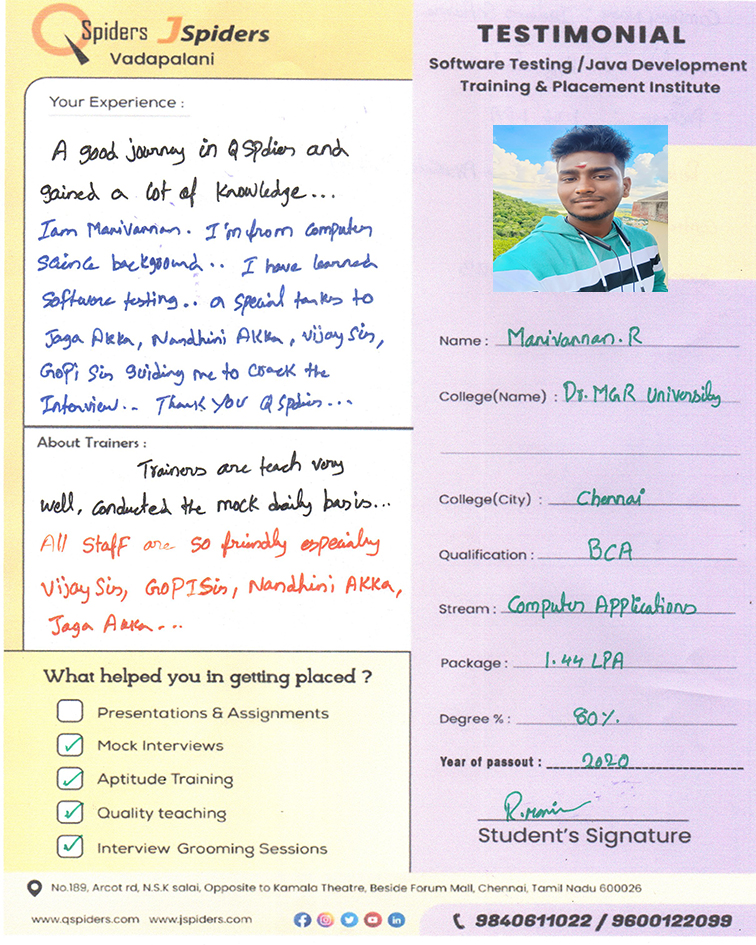 QSpiders JSpiders
Vadapalani
Your Experience :
A good journey in QSpdies and
gained a lot of knowledge...
Iam Manivannan. I'm from computer
science background.. I have learned
Software testing.. a special tankes to
Jaga Akka, Nandhini Akka, Vijay Sir,
Gopi Sir guiding me to crack the
Interview.. Thank you QSpdies...
About Trainers :
Trainers are teach very
well, conducted the mock daily basis...
All Staff are so friendly especialy
Vijay Sir, GOPI Sir, Nandhini Akka,
Jaga Akka...
What helped you in getting placed ?
Presentations & Assignments
Mock Interviews
Aptitude Training
Quality teaching
Interview Grooming Sessions
TESTIMONIAL
Software Testing /Java Development
Training & Placement Institute
Name : Manivannan.R
College(Name) : Dr. MGR University
College(City) : Chennai
Qualification : BCA
Stream : Computer Applications
Package : 1.44 LPA
Degree % : 80%.
Year of passout : 2020
R.Mani
Student's Signature
No.189, Arcot rd, N.S.K salai, Opposite to Kamala Theatre, Beside Forum Mall, Chennai, Tamil Nadu 600026
www.qspiders.com www.jspiders.com
9840611022 / 9600122099